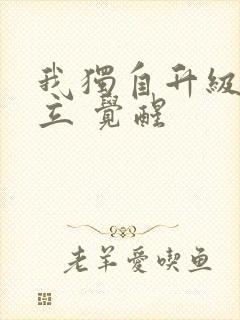 我獨自升級
立 覺醒
老羊愛喫鱼